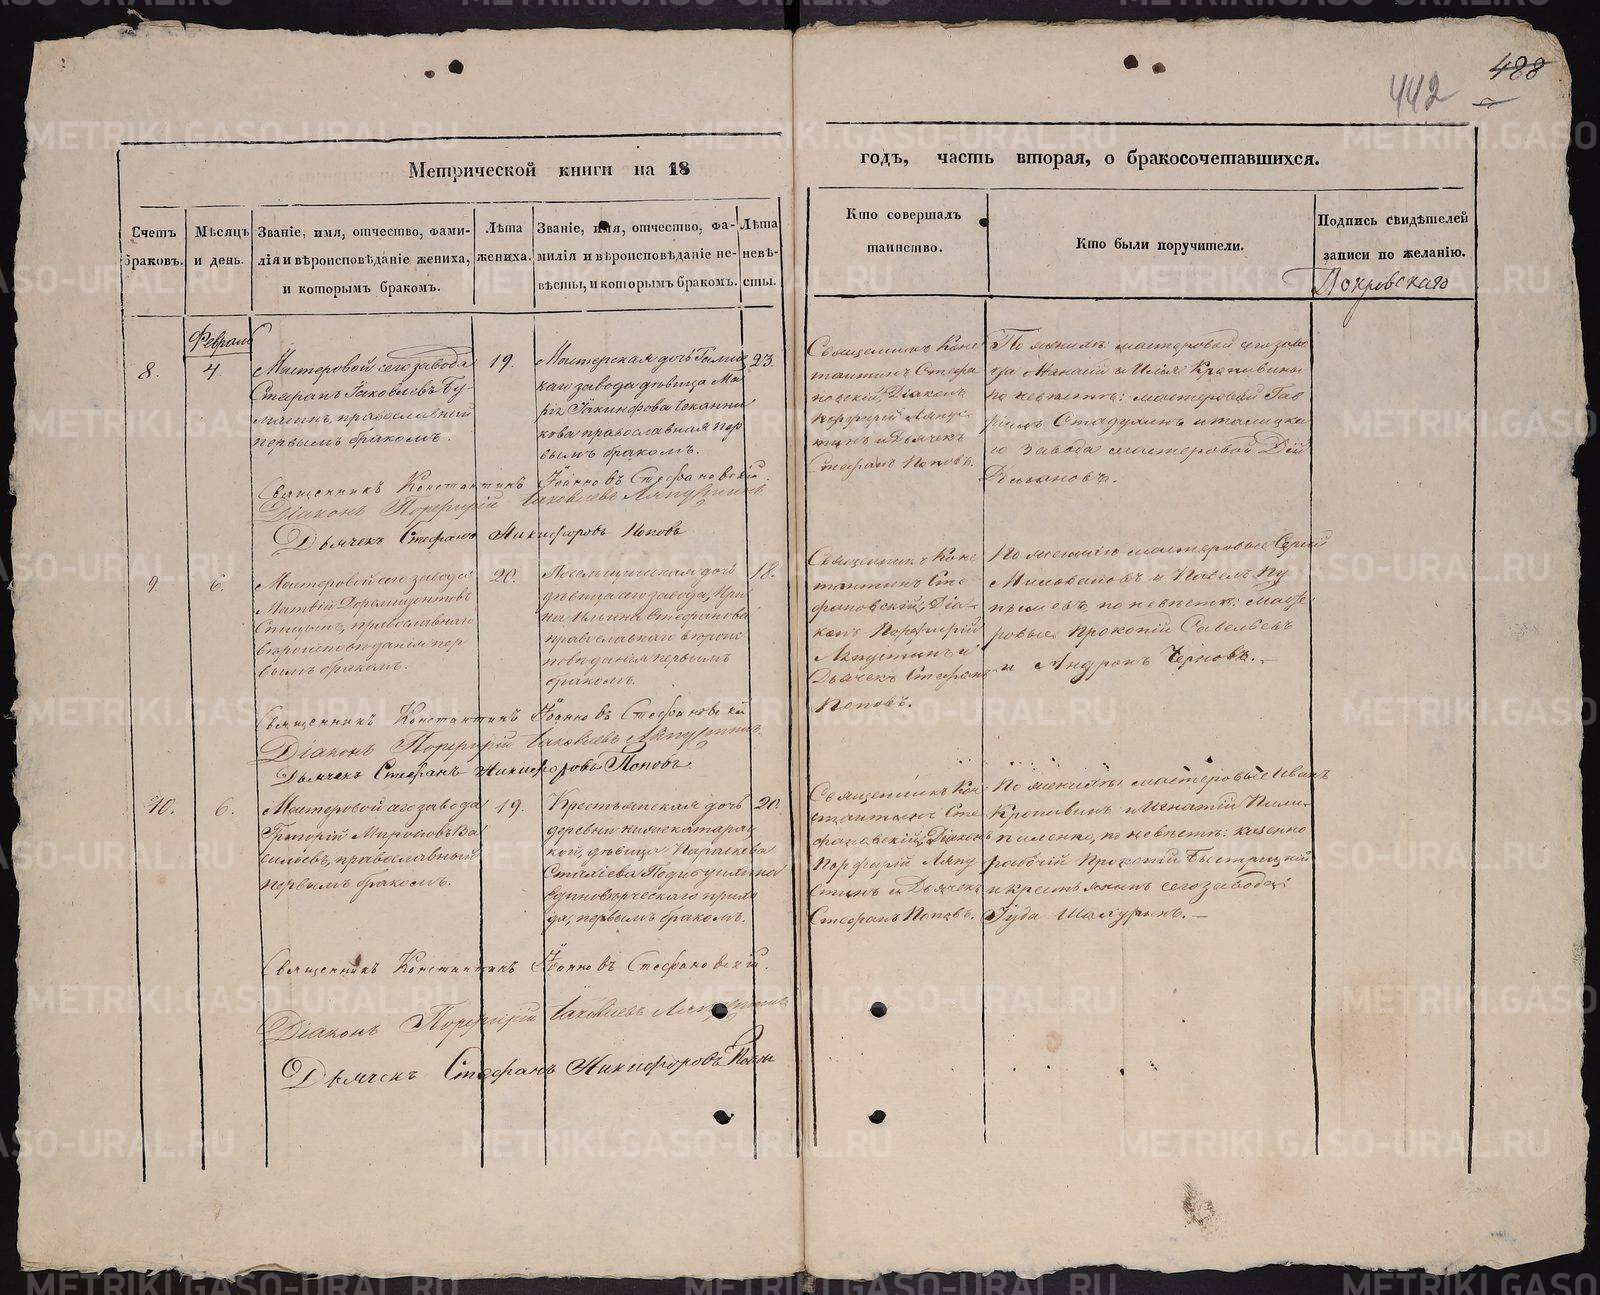 488
442
Метрической книги на 18
годъ, часть вторая, о бракосочетавшихся.
Счетъ браковъ.
Мѣсяцъ и день.
Званіе, имя, отчество, фами-
лія и вѣроисповѣданіе жениха,
и которымъ бракомъ.
Лѣта
жениха.
Званіе, имя, отчество, фа-
милія и вѣроисповѣданіе не-
вѣсты, и которымъ бракомъ.
Лѣта
невѣ-
сты.
Кто совершалъ
таинство.
Кто были поручители.
Подпись свидѣтелей
записи по желанію.
Покровскаго
Февраль
8.
4.
Мастеровой сего завода
Стефанъ Іаковлевъ
православный
первымъ бракомъ.
19.
Мастерская дочь
каго завода дѣвица Ма
рія Іакинфова
кова православная пер
вымъ бракомъ.
23.
Священникъ Конс
тантинъ Стефа
новскій, Діаконъ
Порфирій Ляпус
тинъ и Дьячекъ
Стефанъ Поповъ.
По женихѣ: мастеровой сего заво
да и Илья Крапивины
по невѣстѣ: мастеровой Гав
рилъ Стадухинъ и талицка
го завода мастеровой
Священникъ Константинъ Іоанновъ Стефановскій.
Діаконъ Порфирій Іаковлевъ Ляпустинъ
Дьячекъ Стефанъ Никифоровъ Поповъ
9.
6.
Мастеровой сего завода
Матвій Доримидонтовъ
православнаго
вѣроисповѣданія пер
вымъ бракомъ.
20.
дочь
дѣвица сего завода, Ири
на Ильина Стефанова
православнаго вѣроис
повѣданія первымъ
бракомъ.
18.
Священникъ Конс
тантинъ Сте
фановскій, Діа-
конъ Порфирій
Ляпустинъ и
Дьячекъ Стефанъ
Поповъ.
По женихѣ мастеровые Сергій
и Павелъ
по невѣстѣ: масте
ровые Прокопій Савельевъ
и Андронъ Черновъ.
Священникъ Константинъ Іоанновъ Стефановскій
Діаконъ Порфирій Іаковлевъ Ляпустинъ
Дьячекъ Стефанъ Никифоровъ Поповъ
10.
6.
Мастеровой сего завода
Григорій Мироновъ Ва
сильевъ, православный
первымъ бракомъ.
19.
Крестьянская дочь
деревни
кой, дѣвица Параскева
Единовѣрческаго прихо
да, первымъ бракомъ.
20.
Священникъ Кон
стантинъ Сте
фановскій, Діаконъ
Порфирій Ляпу
стинъ и Дьячекъ
Стефанъ Поповъ.
По женихѣ: мастеровые Иванъ
Крапивинъ и Игнатій
по невѣстѣ: казенно
рабочій Прокопій Быстрицкій
и крестьянинъ сего завода:
Іуда Шахуринъ.
Священникъ Константинъ Іоанновъ Стефановскій.
Діаконъ Порфирій Іаковлевъ Ляпустинъ
Дьячекъ Стефанъ Никифоровъ Поповъ
METRIKI.GASO-URAL.RU